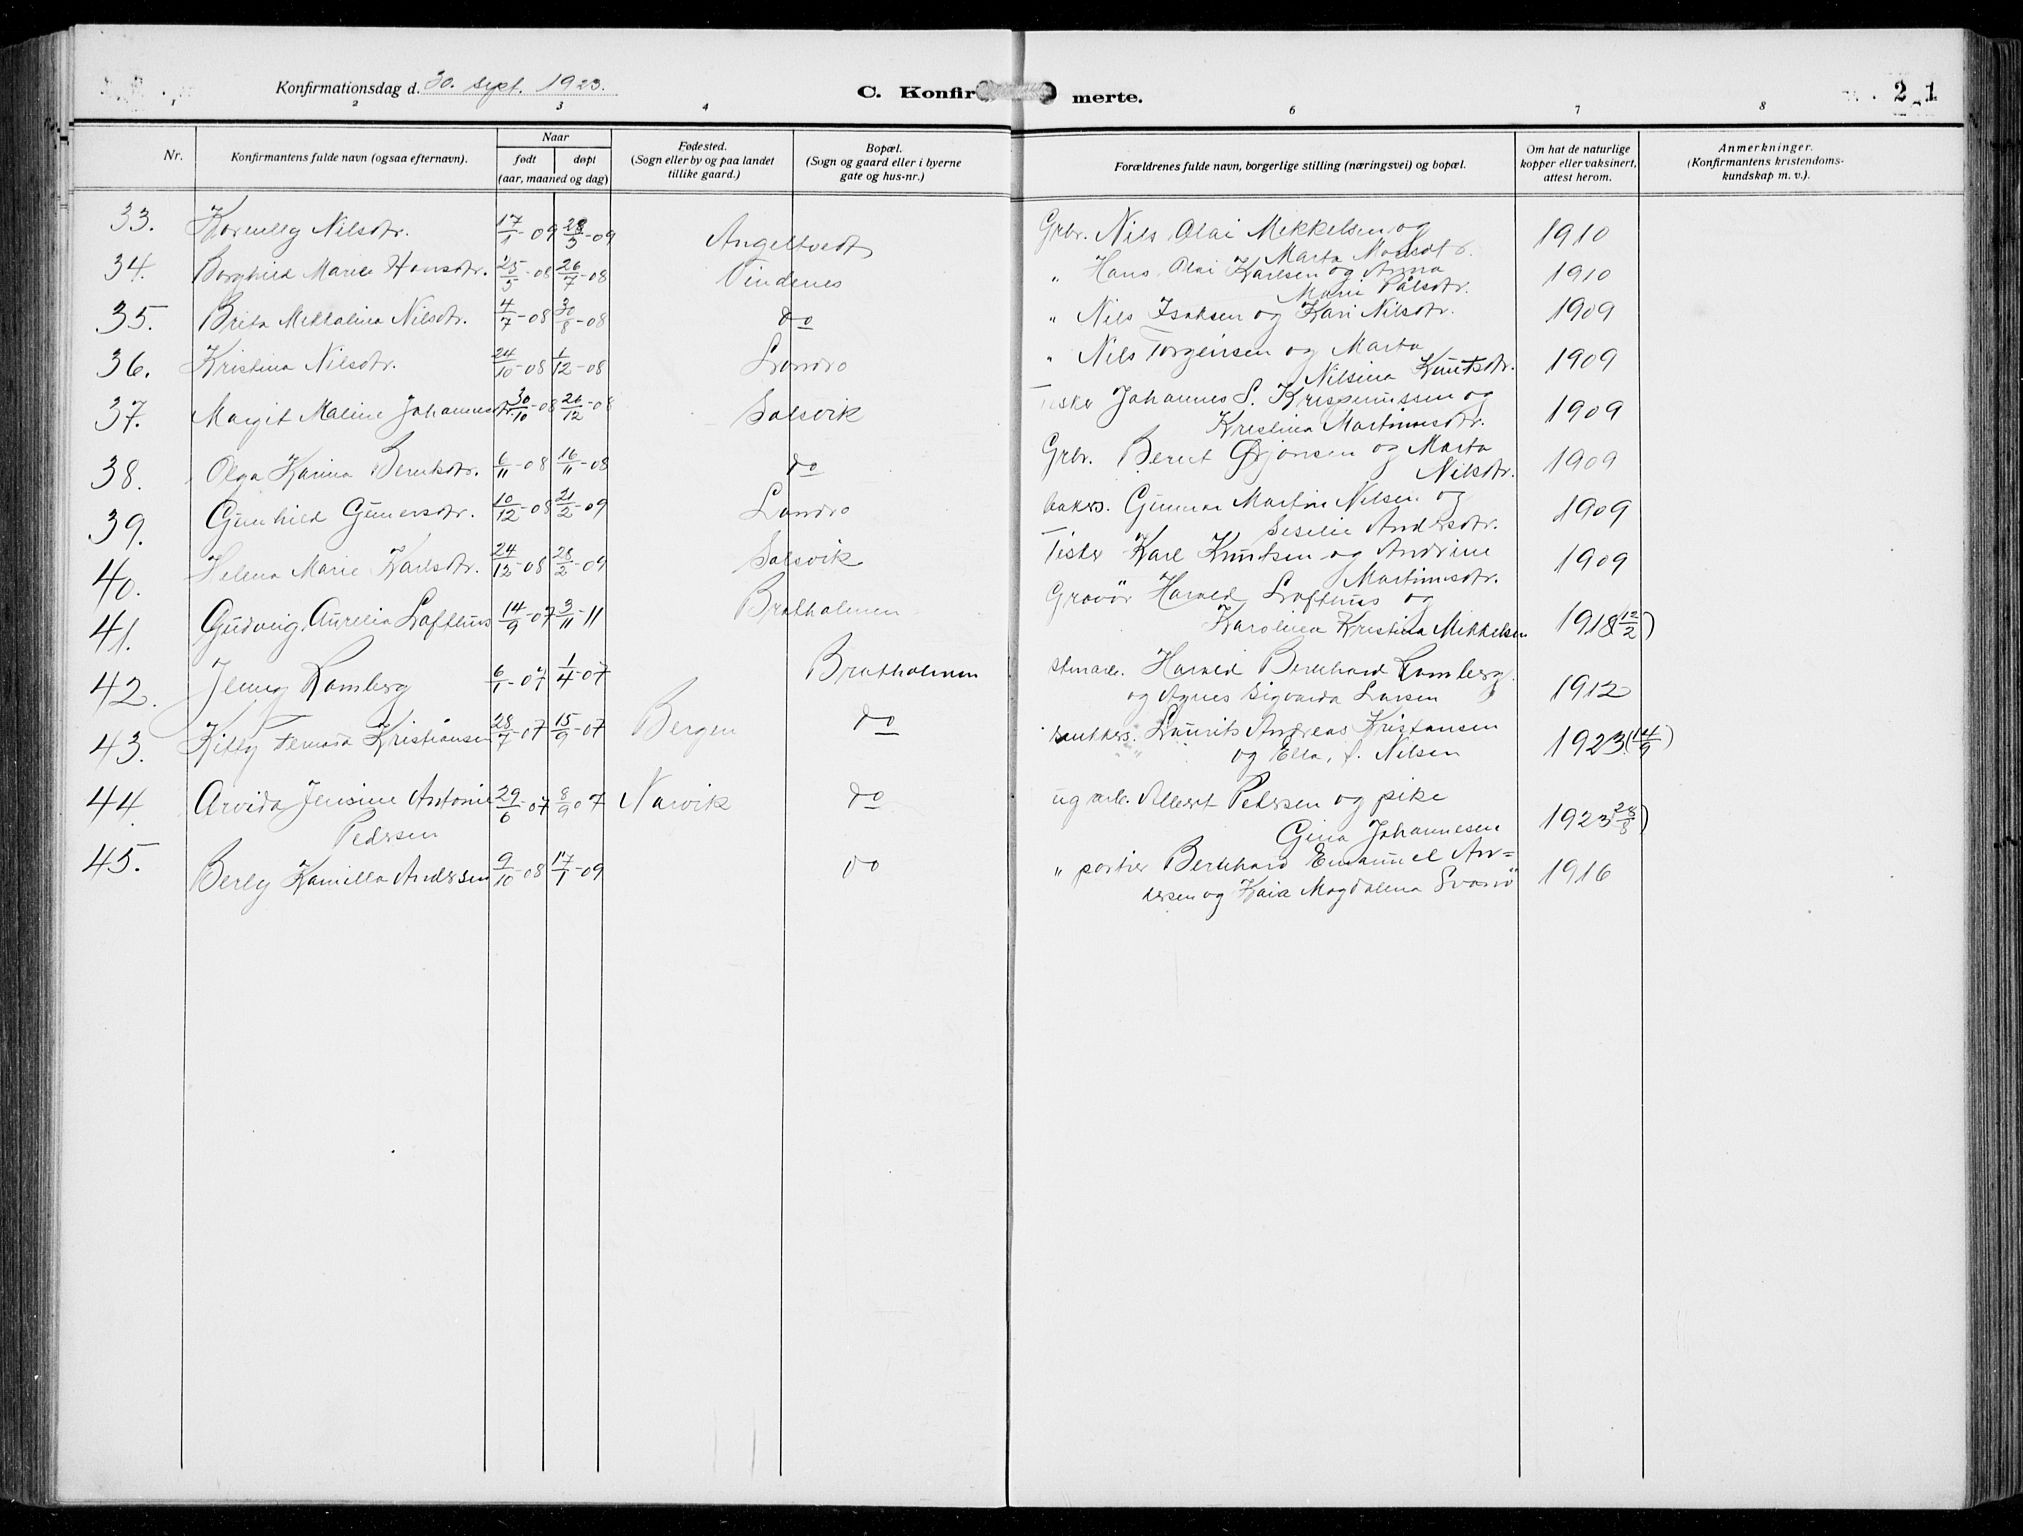 Konfirmationsdag d. 30. sept. 1923.
C. Konfirmerte.
2 1
2 3 4 6 7 8
Nr.
Konfirmantens fulde navn (ogsaa efternavn).
Naar
født døpt
(aar, maaned og dag)
Fødested.
(Sogn eller by og paa landet
tillike gaard.)
Bopæl.
(Sogn og gaard eller i byerne
gate og hus-nr.)
Forældrenes fulde navn, borgerlige stilling (næringsvei) og bopæl.
Om hat de naturlige
kopper eller vaksinert,
attest herom.
Anmerkninger.
(Konfirmantens kristendoms-
kundskap m. v.).
33. Nilsdtr. 17/1-09 28/3-09 Angeltvedt Grbr. Nils Olai Mikkelsen og 1910
Marta Monsdtr.
34. Borghild Marie Hansdtr. 25/5-08 26/7-08 Vindenes " Hans Olai Karlsen og Anna 1910
Marie Pålsdtr.
35. Brita Mikkalina Nilsdtr. 4/7-08 30/8-08 do " Nils Isaksen og Kari Nilsdtr. 1909
36. Kristina Nilsdtr. 24/10-08 1/12-08 Landro " Nils Torgersen og Marta 1909
Nilsina Knutsdtr.
37. Margit Maline Johannesdtr. 30/10-08 26/12-08 Solsvik Fisker Johannes S. Krispinussen og 1909
Kristina Martinusdtr.
38. Olga Karina Berntsdtr. 6/11-08 16/11-08 do Grbr. Bernt Ørjansen og Marta 1909
Nilsdtr.
39. Gunhild Gunersdtr. 10/12-08 21/2-09 Landro bakers. Gunnar Martin Nilsen og 1909
Sesilie Andersdtr.
40. Helena Marie Karlsdtr. 24/12-08 28/2-09 Solsvik Fisker Karl Knutsen og Andrine 1909
Martinusdtr.
41. Gudveig Aurelia Lofthus 14/9-07 3/11-11 Bratholmen Gravør Harald Lofthus og 1918 (12/2)
Karolina Kristina Mikkelsen
42. Jenny Ramberg 6/1-07 1/4-07 Bratholmen stenarb. Harald Bernhard Ramberg 1912
og Agnes Sigvarda Larsen
43. Kitty Kristiansen 28/7-07 15/9-07 Bergen do Laurits Andreas Kristansen 1923 (14/9)
og Ella, f. Nilsen
44. Arvida Jensine Antonie 29/6-07 8/9-07 Narvik do ug arb. Albert Pedersen og pike 1923 28/8)
Pedersen Gina Johannesen
45. Berly Kamilla Andersen 9/10-08 17/1-09 do " portier Bernhard Emanuel An= 1916
dersen og Kaia Magdalena Svanø